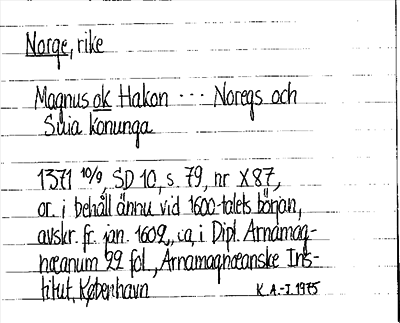 Norge, rike
Magnus ok Hakon --- Noregs och
Suia konunga
1371 10/9, SD 10, s. 79, nr X87,
or. i behåll ännu vid 1600-talets början,
avskr. fr. jan. 1602, ca, i Dipl. Arnamag-
næanum 22 fol., Arnamagnæanske Ins-
titut, København
K.A.-I. 1975